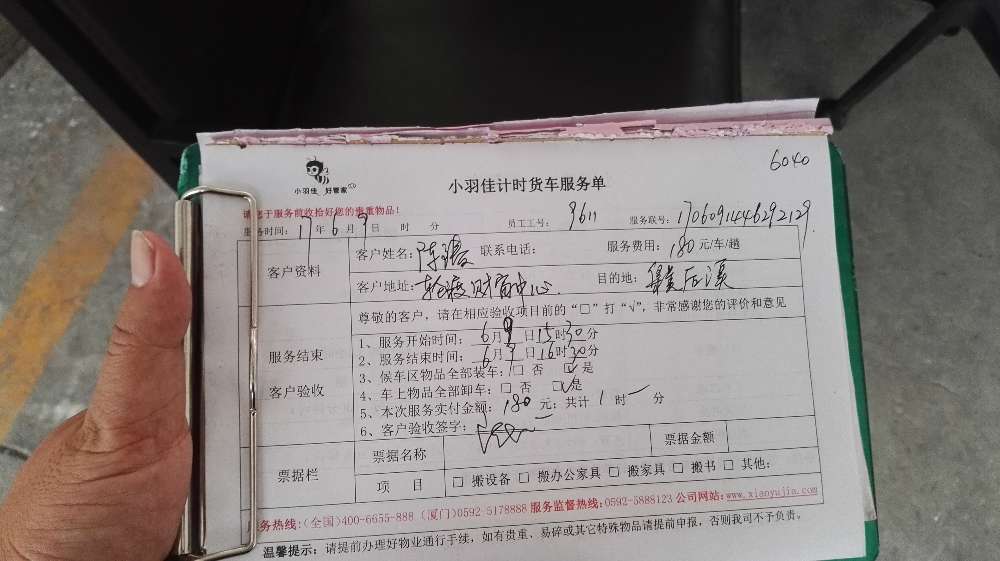 6040
小羽佳 好管家
小羽佳计时货车服务单
请您于服务前收拾好您的贵重物品！
服务时间：17年6月9日 时 分 员工工号：9611 服务联号：1706091446292129
客户资料 客户姓名：陈 联系电话： 服务费用：180元/车/趟
客户地址：财富中心 目的地：后溪
尊敬的客户，请在相应验收项目前的“□”打“√”，非常感谢您的评价和意见
服务结束
客户验收
1、服务开始时间：6月9日15时30分
2、服务结束时间：6月9日16时30分
3、候车区物品全部装车：□ 否 □√是
4、车上物品全部卸车：□ 否 □√是
5、本次服务实付金额：180元；共计1时一分
6、客户验收签字：
票据栏 票据名称 票据金额
项 目 □ 搬设备 □ 搬办公家具 □ 搬家具 □ 搬书 □ 其他：
服务热线：(全国)400-6655-888 (厦门)0592-5178888 服务监督热线：0592-5888123 公司网站：www.xiaoyujia.com
温馨提示：请提前办理好物业通行手续，如有贵重、易碎或其它特殊物品请提前申报，否则我司不予负责。